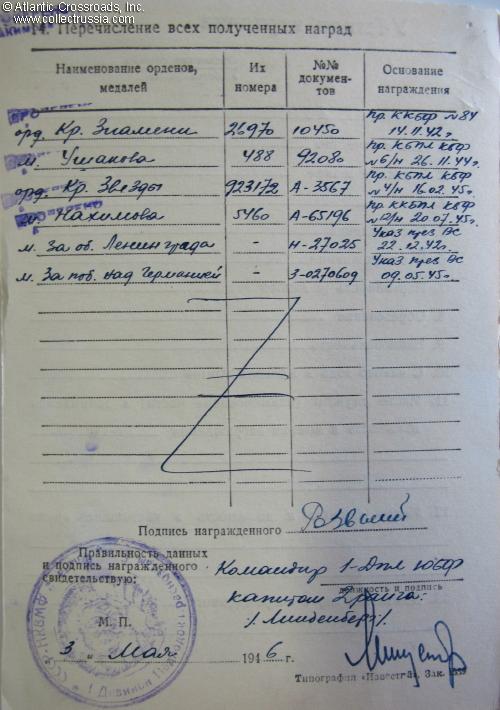 © Atlantic Crossroads, Inc.
www.collectrussia.com
14. Перечисление всех полученных наград
Наименование орденов, медалей Их номера №№ документов Основание награждения
орд. Кр. Знамени 26970 10450 Пр. ККБФ №84 14.11.42г.
м. Ушакова 488 92080 Пр. КБТЛ КБФ №6/н 26.11.44г.
орд. Кр. Звезды 923172 А-3567 Пр. КБТЛ КБФ №4/н 16.02.45г.
м. Нахимова 5460 А-65196 Пр. ККБТЛ КБФ 20.07.45г.
м. За об. Ленинграда - Н-27025 Указ през ВС 22.12.42г.
м. За поб. над Германией - З-0270609 Указ през ВС 09.05.45г.
Подпись награжденного
Правильность данных
и подпись награжденного
свидетельствую:
Командир 1-Дтк ЮБФ
должность и подпись
капитан 2 ранга:
/Линденберг/.
М. П.
3 " Мая 1946 г.
Типография «Известия». Зак.